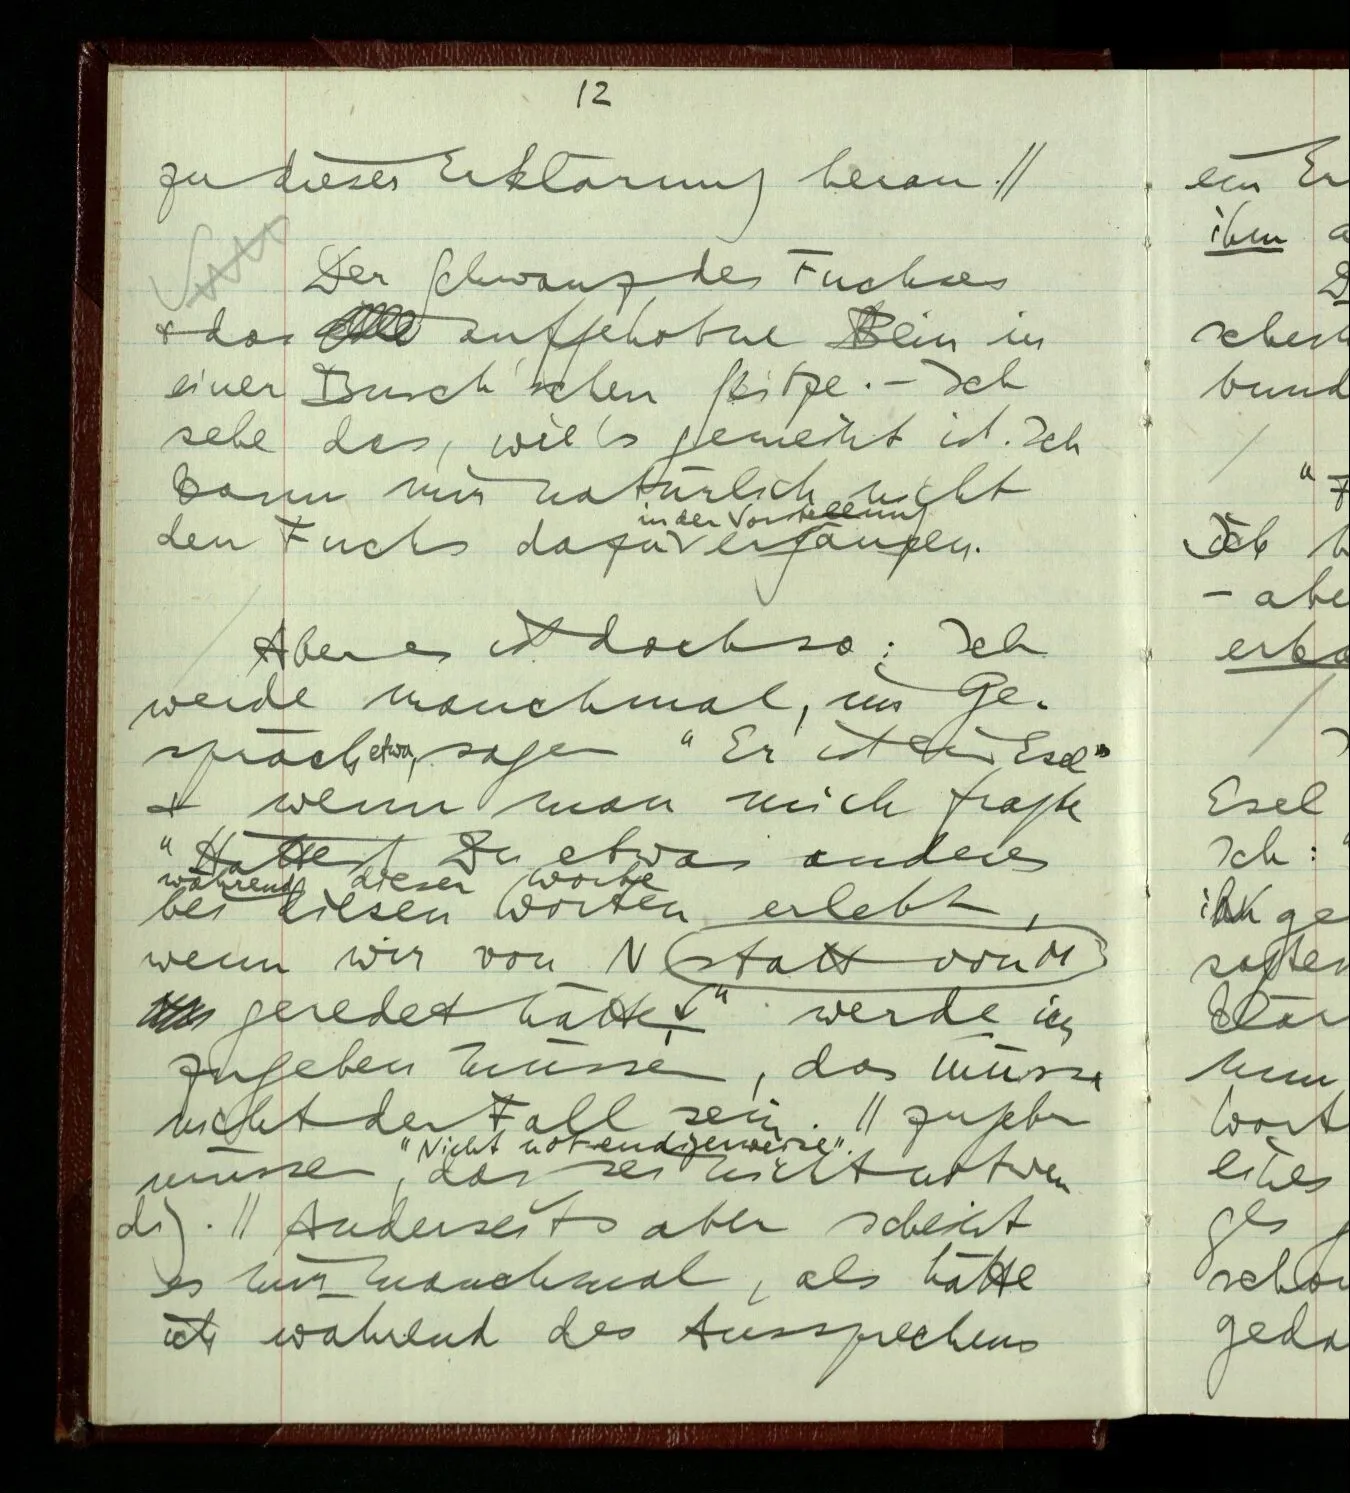 12
zu dieser Erklärung heran.//
Der Schwanz des Fuchses
+ das aufgehobne Bein in
einer Busch'schen Skizze. – Ich
sehe das, wie's gemeint ist. Ich
kann mir natürlich nicht
in der Vorstellung
den Fuchs dazu ergänzen.
Aber es ist doch so: Ich
werde manchmal, im Ge-
spräch etwa, sagen "Er ist ein Esel"
+ wenn man mich fragte
"Hattest Du etwas anderes
während dieser Worte
bei diesen Worten erlebt,
wenn wir von N statt von M
geredet hätten" werde ich
zugeben müssen, das müsse
nicht der Fall sein. // zugeben
"Nicht notwendigerweise".
müssen, das sei nicht notwen
dig. // Anderseits aber scheint
es mir manchmal, als hätte
ich während des Aussprechens
ein Er
ihm a
D
schest
bund
Ich h
– abe
Esel
Ich: "
ge
sagten
klär
Wort
eines
ges
schon
geda